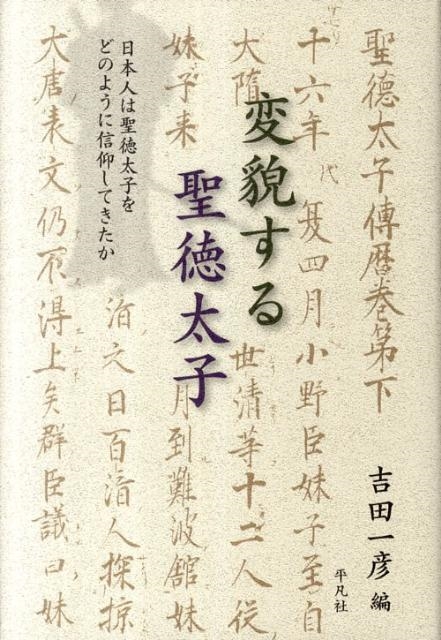 変貌する
聖徳太子
日本人は聖徳太子を
どのように信仰してきたか
吉田一彦 編
平凡社
聖德太子傳暦卷第下
十六年 代 夏四月小野臣妹子至自
大隋 世清等十二人従
妹子来 月到難波舘妹
洎文日百済人探掠
大唐表文仍不得上矣群臣議曰妹